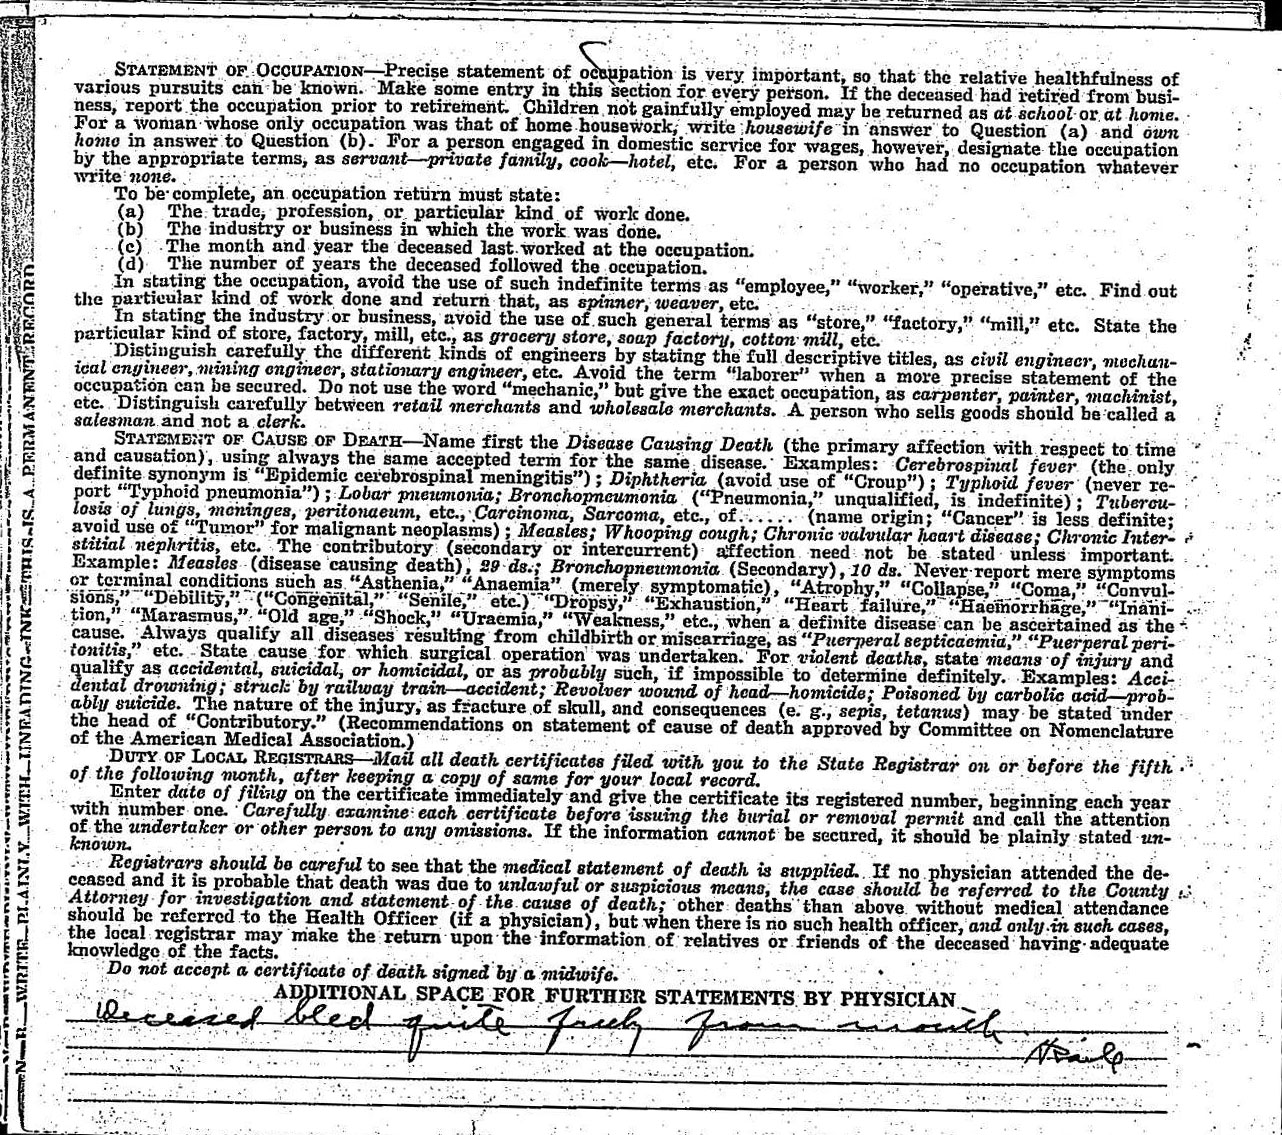 STATEMENT OF OCCUPATION—Precise statement of occupation is very important, so that the relative healthfulness of
various pursuits can be known. Make some entry in this section for every person. If the deceased had retired from busi-
ness, report the occupation prior to retirement. Children not gainfully employed may be returned as at school or at home.
For a woman whose only occupation was that of home housework, write housewife in answer to Question (a) and own
home in answer to Question (b). For a person engaged in domestic service for wages, however, designate the occupation
by the appropriate terms, as servant—private family, cook—hotel, etc. For a person who had no occupation whatever
write none.
To be complete, an occupation return must state:
(a) The trade, profession, or particular kind of work done.
(b) The industry or business in which the work was done.
(c) The month and year the deceased last worked at the occupation.
(d) The number of years the deceased followed the occupation.
In stating the occupation, avoid the use of such indefinite terms as “employee,” “worker,” “operative,” etc. Find out
the particular kind of work done and return that, as spinner, weaver, etc.
In stating the industry or business, avoid the use of such general terms as “store,” “factory,” “mill,” etc. State the
particular kind of store, factory, mill, etc., as grocery store, soap factory, cotton mill, etc.
Distinguish carefully the different kinds of engineers by stating the full descriptive titles, as civil engineer, mechan-
ical engineer, mining engineer, stationary engineer, etc. Avoid the term “laborer” when a more precise statement of the
occupation can be secured. Do not use the word “mechanic,” but give the exact occupation, as carpenter, painter, machinist,
etc. Distinguish carefully between retail merchants and wholesale merchants. A person who sells goods should be called a
salesman and not a clerk.
STATEMENT OF CAUSE OF DEATH—Name first the Disease Causing Death (the primary affection with respect to time
and causation), using always the same accepted term for the same disease. Examples: Cerebrospinal fever (the only
definite synonym is “Epidemic cerebrospinal meningitis”); Diphtheria (avoid use of “Croup”); Typhoid fever (never re-
port “Typhoid pneumonia”); Lobar pneumonia; Bronchopneumonia (“Pneumonia,” unqualified, is indefinite); Tubercu-
losis of lungs, meninges, peritonaeum, etc., Carcinoma, Sarcoma, etc., of...... (name origin; “Cancer” is less definite;
avoid use of “Tumor” for malignant neoplasms); Measles; Whooping cough; Chronic valvular heart disease; Chronic Inter-
stitial nephritis, etc. The contributory (secondary or intercurrent) affection need not be stated unless important.
Example: Measles (disease causing death), 29 ds.; Bronchopneumonia (Secondary), 10 ds. Never report mere symptoms
or terminal conditions such as “Asthenia,” “Anaemia” (merely symptomatic), “Atrophy,” “Collapse,” “Coma,” “Convul-
sions,” “Debility,” (“Congenital,” “Senile,” etc.) “Dropsy,” “Exhaustion,” “Heart failure,” “Haemorrhage,” “Inani-
tion,” “Marasmus,” “Old age,” “Shock,” “Uraemia,” “Weakness,” etc., when a definite disease can be ascertained as the
cause. Always qualify all diseases resulting from childbirth or miscarriage, as “Puerperal septicaemia,” “Puerperal peri-
tonitis,” etc. State cause for which surgical operation was undertaken. For violent deaths, state means of injury and
qualify as accidental, suicidal, or homicidal, or as probably such, if impossible to determine definitely. Examples: Acci-
dental drowning; struck by railway train—accident; Revolver wound of head—homicide; Poisoned by carbolic acid—prob-
ably suicide. The nature of the injury, as fracture of skull, and consequences (e. g., sepis, tetanus) may be stated under
the head of “Contributory.” (Recommendations on statement of cause of death approved by Committee on Nomenclature
of the American Medical Association.)
DUTY OF LOCAL REGISTRARS—Mail all death certificates filed with you to the State Registrar on or before the fifth
of the following month, after keeping a copy of same for your local record.
Enter date of filing on the certificate immediately and give the certificate its registered number, beginning each year
with number one. Carefully examine each certificate before issuing the burial or removal permit and call the attention
of the undertaker or other person to any omissions. If the information cannot be secured, it should be plainly stated un-
known.
Registrars should be careful to see that the medical statement of death is supplied. If no physician attended the de-
ceased and it is probable that death was due to unlawful or suspicious means, the case should be referred to the County
Attorney for investigation and statement of the cause of death; other deaths than above without medical attendance
should be referred to the Health Officer (if a physician), but when there is no such health officer, and only in such cases,
the local registrar may make the return upon the information of relatives or friends of the deceased having adequate
knowledge of the facts.
Do not accept a certificate of death signed by a midwife.
ADDITIONAL SPACE FOR FURTHER STATEMENTS BY PHYSICIAN
Deceased bled quite freely from mouth
N. B.—WRITE PLAINLY WITH UNFADING INK—THIS IS A PERMANENT RECORD